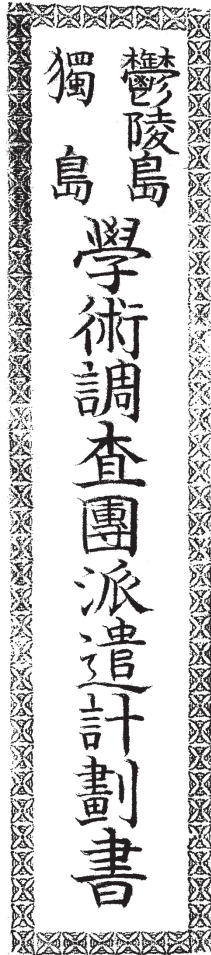 鬱陵島
獨島
學術調査團派遣計劃書